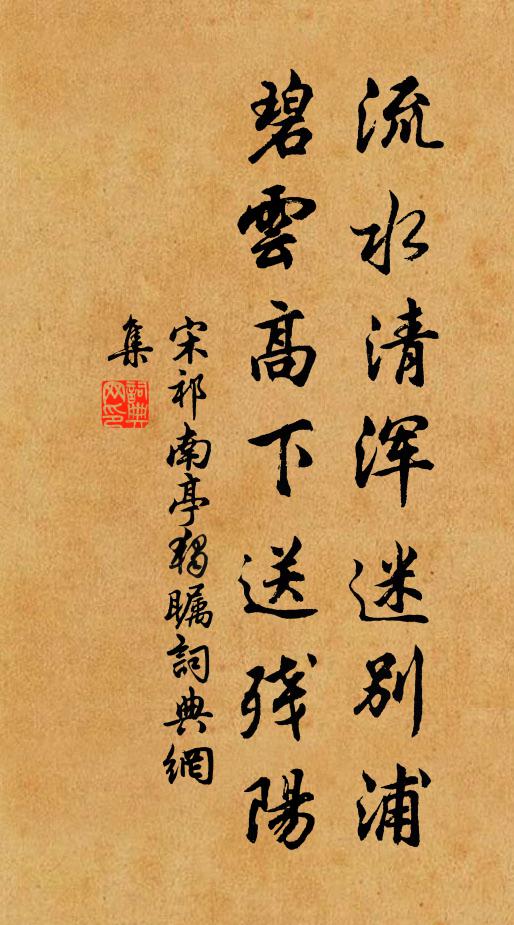 流水清浑迷别浦
碧雲高下送残陽
宋祁南亭独瞩詞典網
集
詞典網印